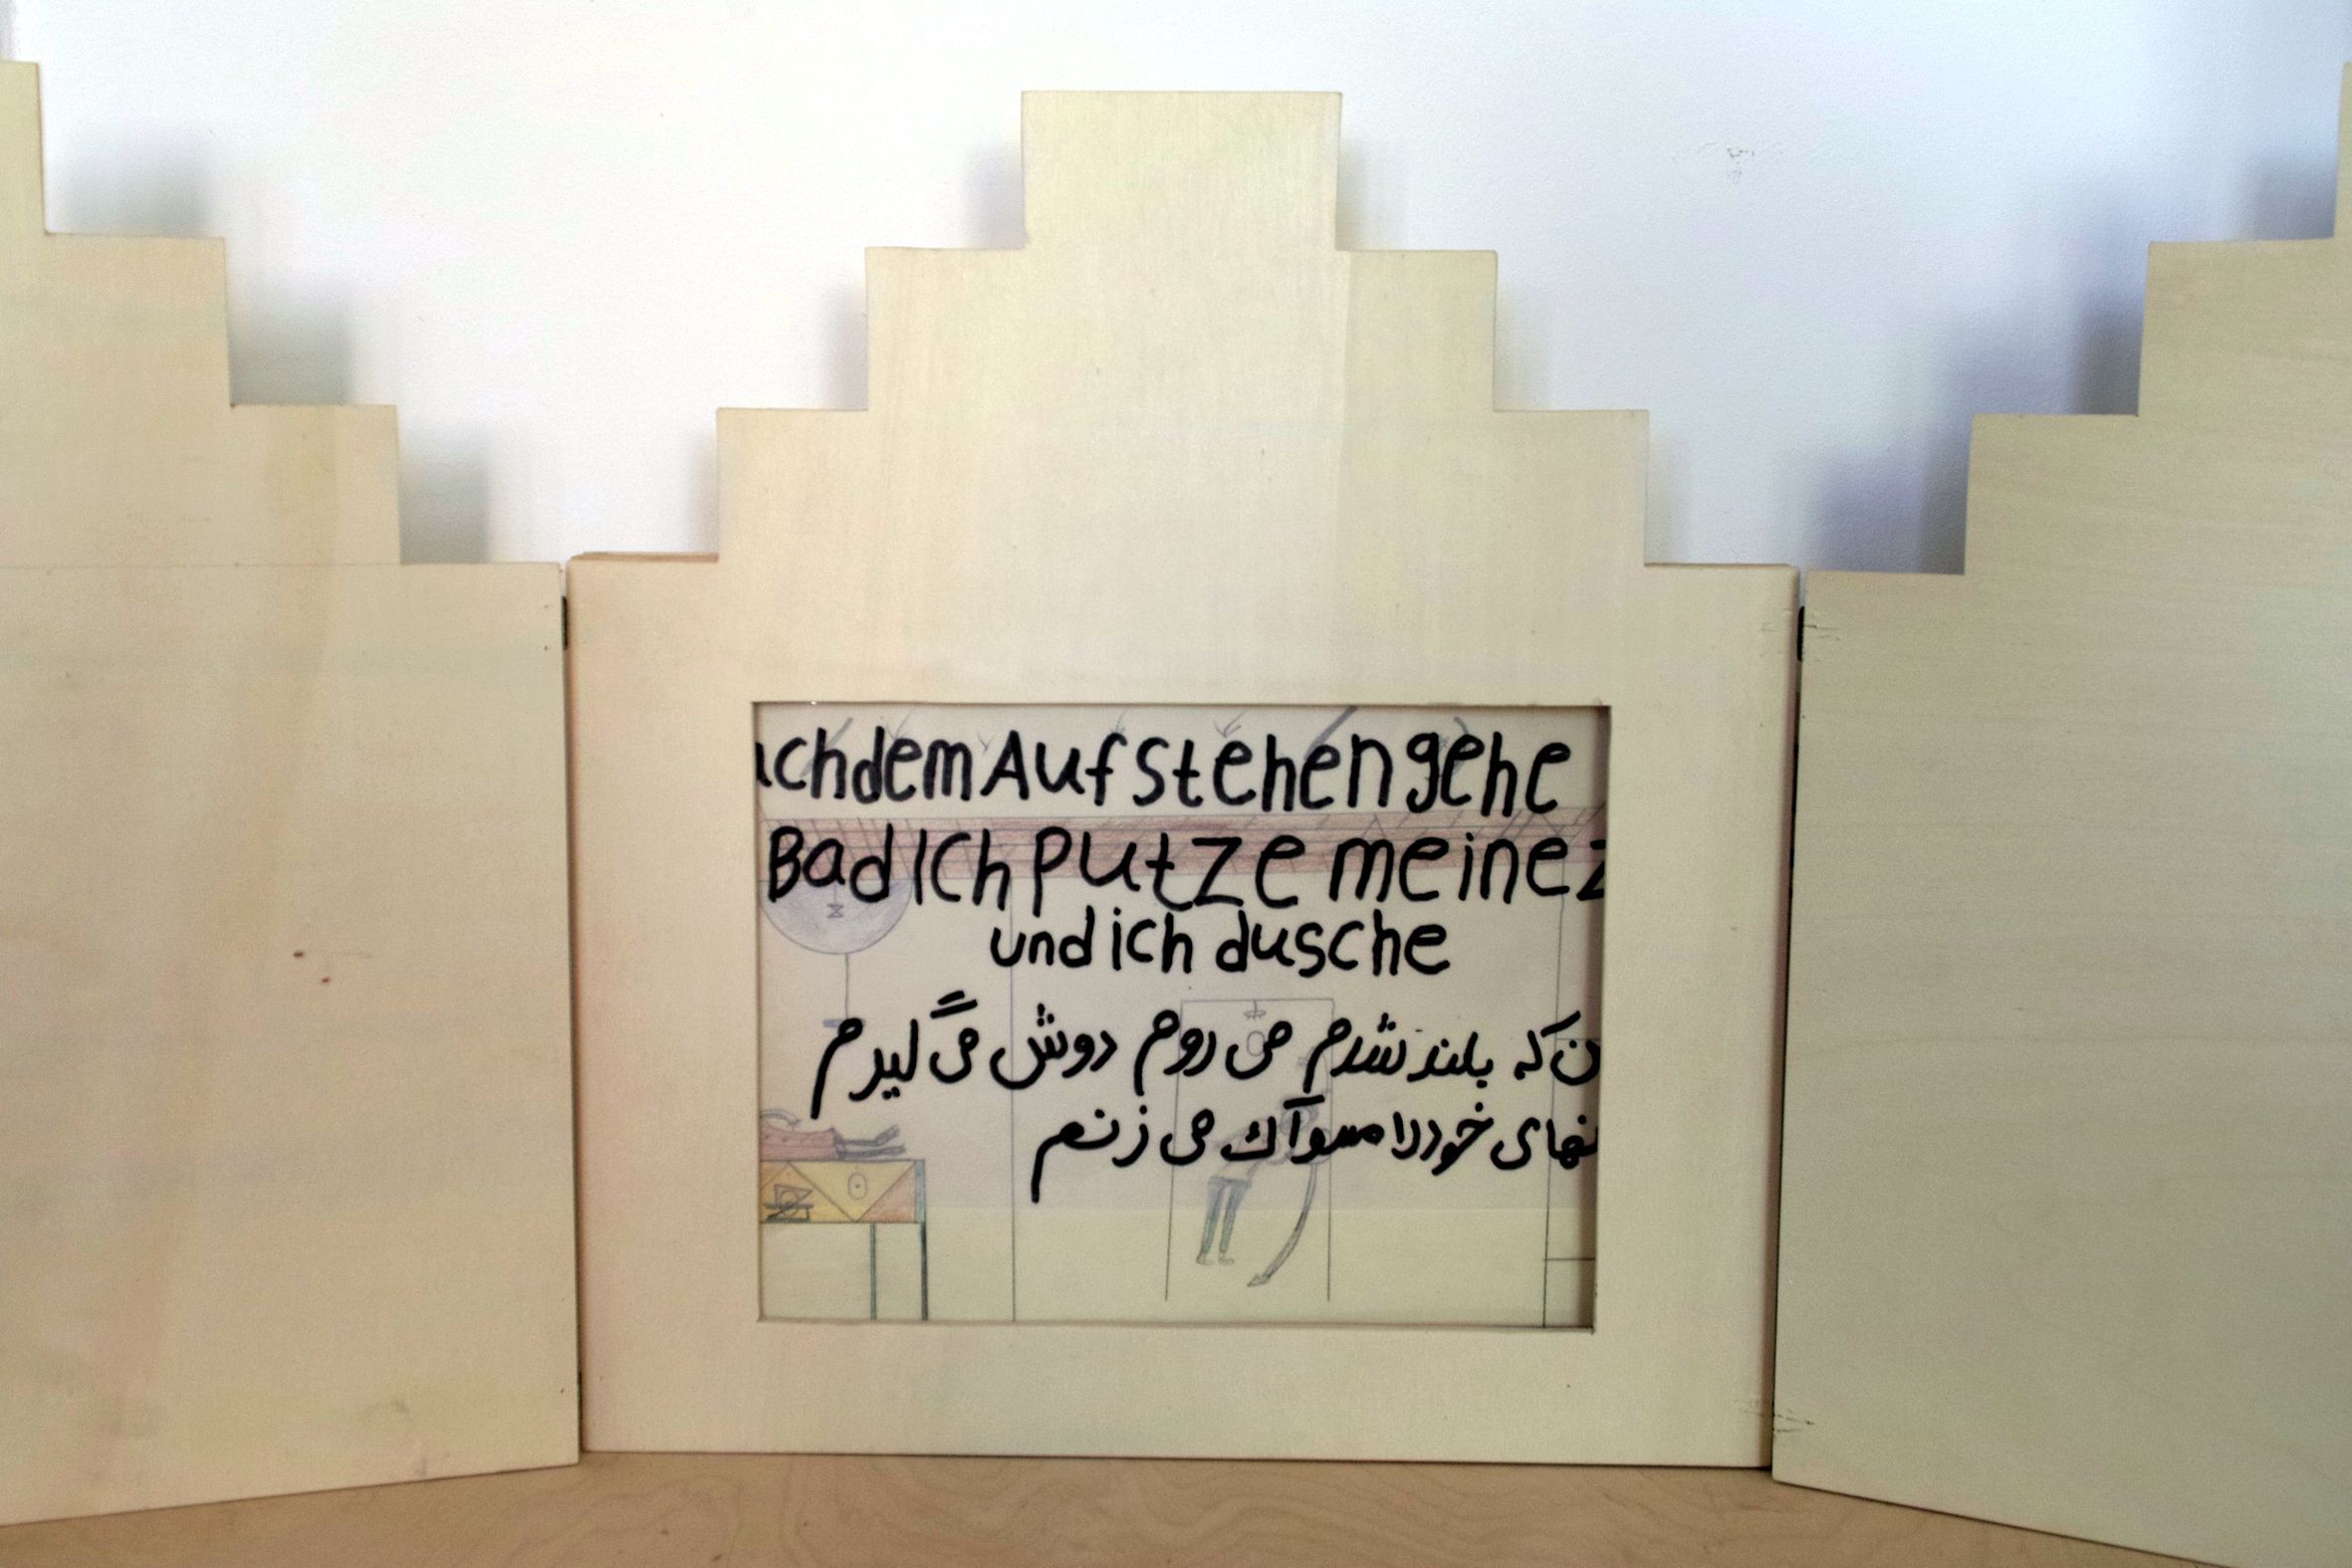 achdem Aufstehen gehe
Bad Ich putze meine z
und ich dusche
ن که بلند شدم می روم دوش می گیرم
نهای خود را مسواک می زنم